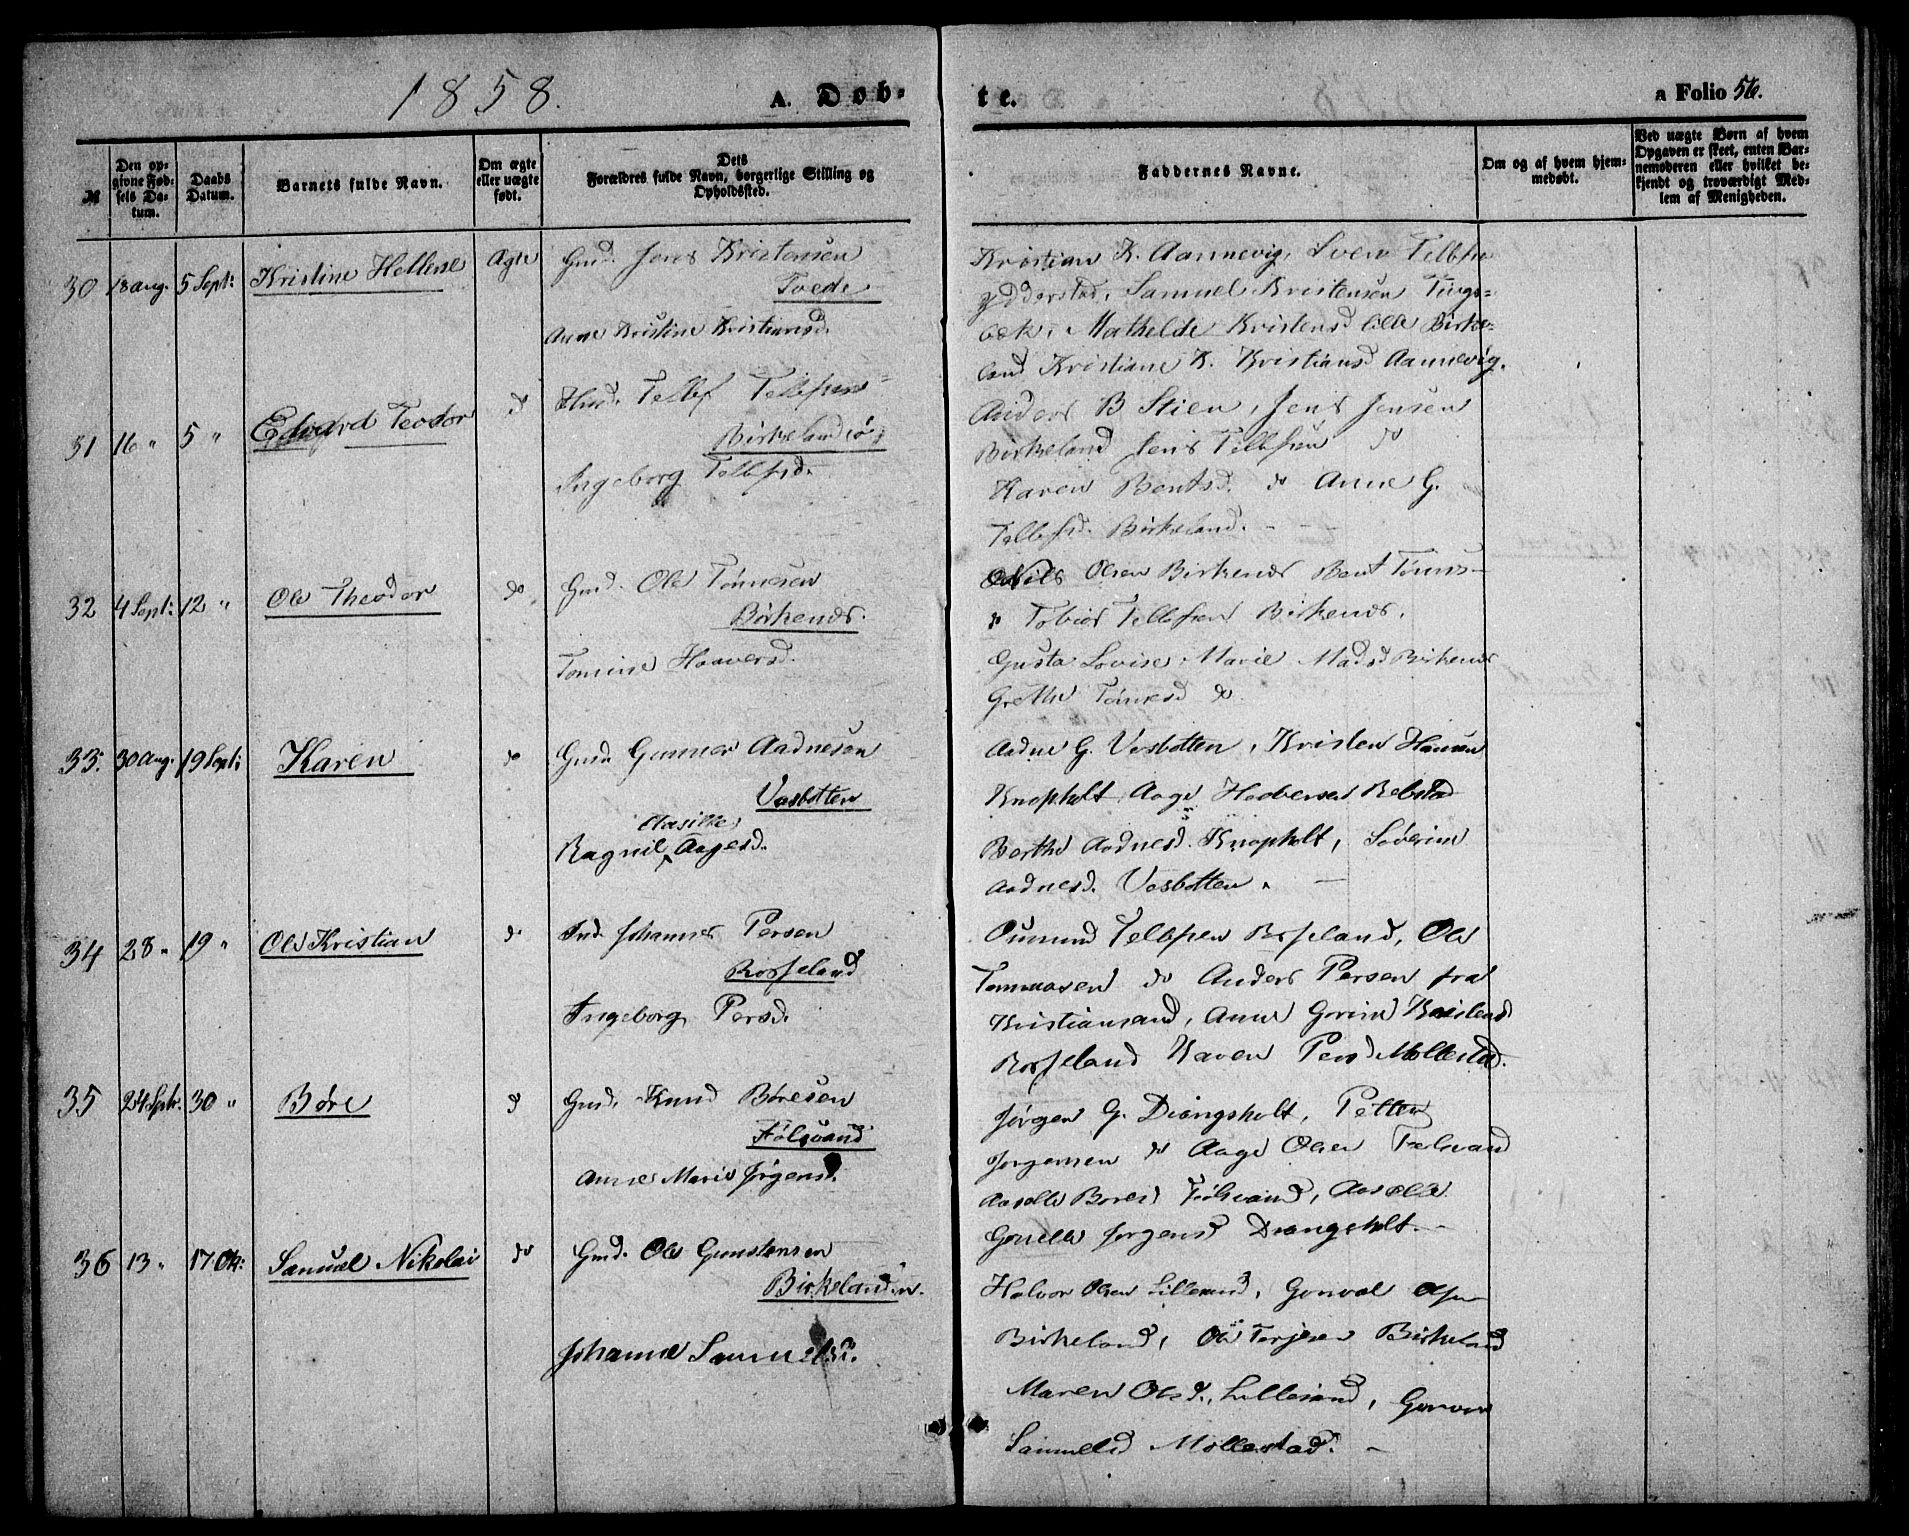 1858. A. Dob-
te.
a Folio 56.
№
Den op-
givne Fød-
sels Da-
tum.
Daabs
Datum.
Barnets fulde Navn.
Om ægte
eller uægte
født.
Dets
Forældres fulde Navn, borgerlige Stilling og
Opholdssted.
Faddernes Navne.
Om og af hvem hjem-
medøbt.
Ved uægte Børn af hvem
Opgaven er skeet, enten Bar-
nemoderen eller hvilket be-
kjendt og troværdigt Med-
lem af Menigheden.
30 18 aug. 5 Sept: Kristine Hellene Ægte Gmd. Jens Kristensen
Tvede
Anne Kristine Kristiansd.
Kristian K. Aannevig, Sven Tellefse
Ydderstad, Samuel Kristensen Tings-
bæk, Mathelde Kristensd lille Birke-
land Kristiane K. Kristiansd Aannevig.
31 16 " 5 " Edvard Teodor do Tellef Tellefsens
Birkeland
Ingeborg Tellefsd.
Anders B Stien, Jens Jensen
Birkeland Jens Tellefsen do
Karen Bentsd. do Anne G.
Tellefsd. Birkeland. - - -
32 4 Sept: 12 " Ole Theodor do Gmd. Ole Tønnesen
Birkenes.
Tomine Haaversd.
Nils Olsen Birkenes Bent Tønnes-
" Tobias Tellefsen Birkenes.
Gusta Lovise Marie Madsd Birkenes
Grethe Tønnesd do.
33. 30 Aug. 19 Sept: Karen do Gmd. Gunner Aadnesen
Vasbotten
Aasilke
Ragnil Aagesd.
Aadne G. Vasbotten, Kristen Hansen
Knapholt, Aage Rebstad
Berthe Aadnesd. Knapholt, Søverine
Aadnesd. Vasbotten. -
34 28 " 19 " Ole Kristian do Ind. Johannes Persen
Rosseland
Ingeborg Persd.
Tellefsen Rosseland, Ole
do Anders Persen fra
Kristiansand, Anne
Rosseland Karen Persd Mollestad.
35 24 Septr. 30 " Børe do Gmd. Knud Børesen
Følsvand
Anne Marie Jørgensd.
Jørgen G. Drangsholt, Petter
Jørgensen do Aage Olsen Følsvand
Aaselle Boresd Følsvand, Aaselle
Jørgensd Drangsholt. -
36 13 " 17 Ok: Samuel Nikolai do Gmd. Ole Gunstensen
Birkeland
Johanne Samuelsd.
Halvor Olsen Lillesand, Gonvol
Birkeland, Ole Terjesen Birkeland
Maren Olsd., Lillesand, Gunvor
Samuelsd Mollestad. -